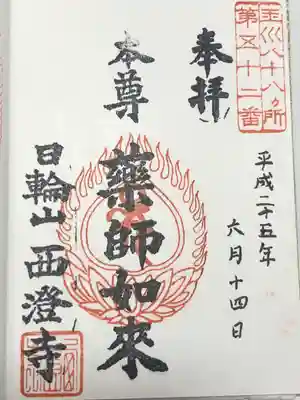 玉川八十八ヶ所
第五十二番
奉拝
平成二十五年
六月十四日
本尊
薬師如来
日輪山 西澄寺